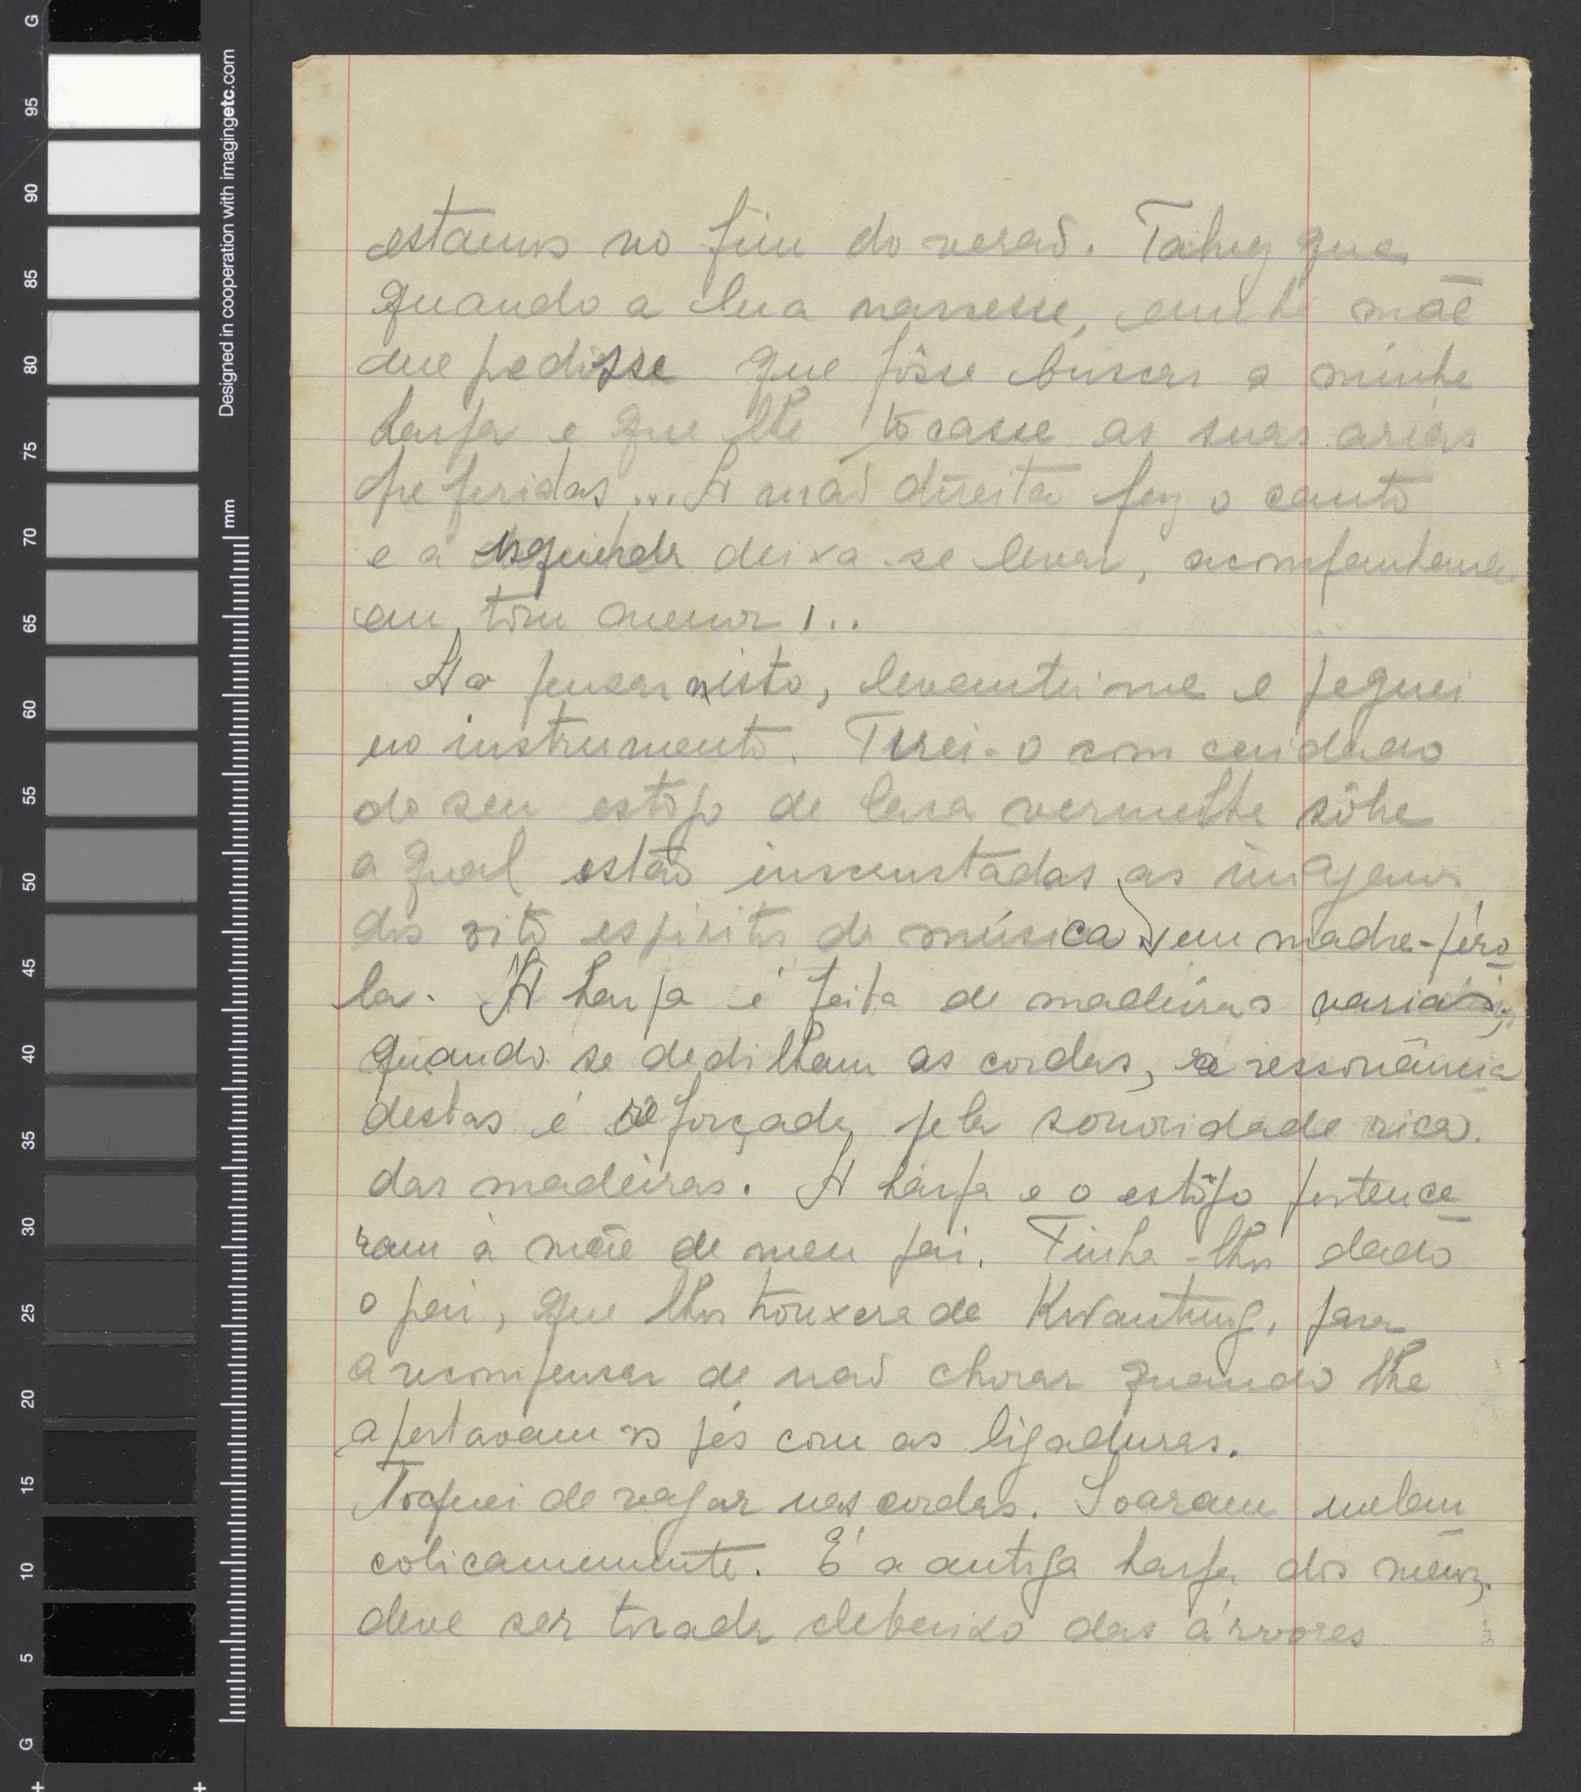 estamos no fim do verão. Talvez que
quando a lua nascesse, minha mãe
me pedisse que fôsse buscar a minha
harpa e que lhe tocasse as suas arias
preferidas... A mão direita fez o canto
e a esquerda deixa-se levar, acompanhando
em tom menor...
Ao pensar nisto, levantei-me e peguei
no instrumento. Tirei-o com cuidado
do seu estôjo de laca vermelha sôbre
a qual estão inscrustadas as imagens
dos oito espiritos da música, em madre-péro
la. A harpa é feita de madeiras varias;
quando se dedilham as cordas, a ressonância
destas é reforçada pela sonoridade rica
das madeiras. A harpa e o estôjo pertence
ram à mãe de meu pai. Tinha-lhos dado
o pai, que lhos trouxera de Kwantung, para
a recompensar de não chorar quando lhe
apertavam os pés com as ligaduras.
Toquei de vagar nas cordas. Soaram melan
colicamemente. É a antiga harpa dos meus,
deve ser tocada debaixo das árvores
Designed in cooperation with imagingetc.com
mm
G
95
90
85
80
75
70
65
60
55
50
45
40
35
30
25
20
15
10
5
G